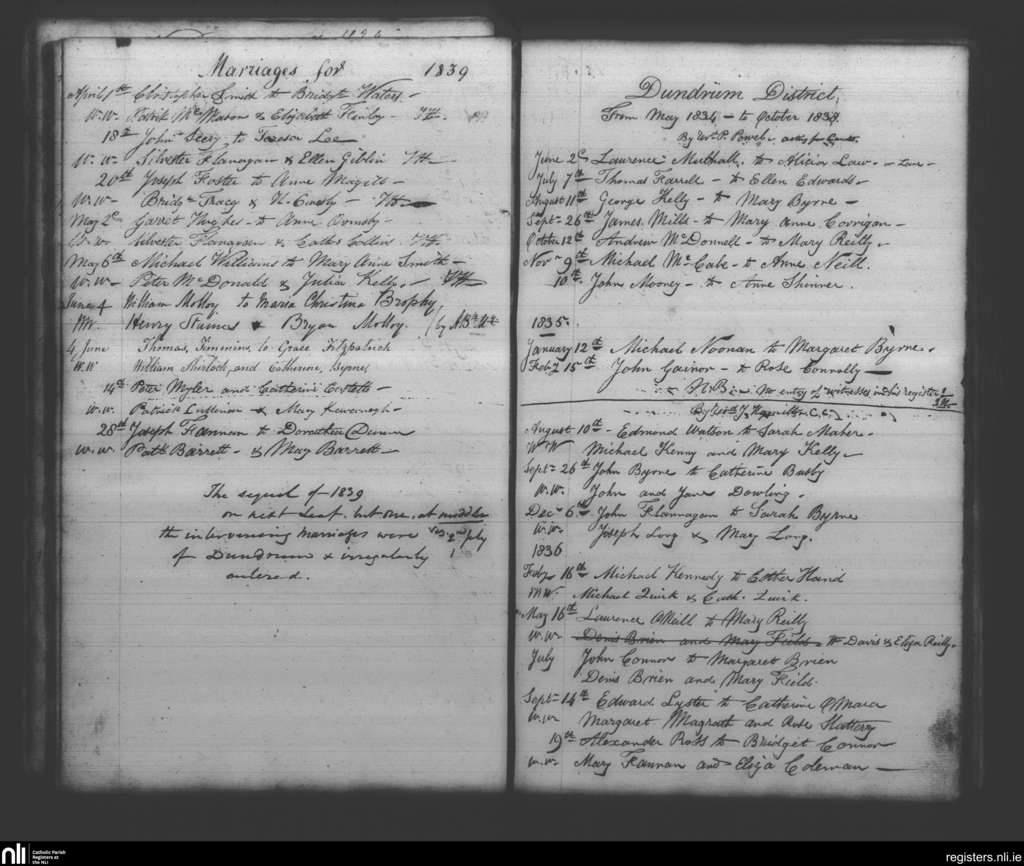 Marriages for 1839
April 1st Christopher Smith to Bridgt Waters -
W.W. Patrick McMahon & Elizabeth
18th John to Teresa Lee -
W. W- Silvester Flanagan & Ellen Giblin
20th Joseph Foster to Anne Magill -
W.W- Bridt Tracy &
May 2nd Garrit Hughes - to Anne Ormsby -
W.W. Silvester Flanagan & Cathe Collins
May 6th Michael Williams to Mary Anne Smith -
W.W- Peter McDonald & Julia Kelly. -
June 4 William Molloy to Maria Christina Brophy
W. Henry & Bryan Molloy. (by
4 June Thomas, Timmins, to Grace, Fitzpatrick
W.W William Shirlock, and Catherine, Byrne,
14th Peter Myler and Catherine
W.W. Patrick & Mary Kavanagh -
28th Joseph Fannon to Dorothea Dunn
W.W. Patk Barrett - & Mary Barrett -
The sequel of 1839
on next leaf but one, at middle
the intervening marriages were
of Dundrum & irregularly
entered.
Dundrum District,
From May 1834 - to October 1838.
By Wm. P.
June 2nd Laurence Mulhall. to Alicia Law. - Law -
July 7th Thomas Farrell - to Ellen Edwards -
August 11th George Kelly - to Mary Byrne -
Sept- 26th James Mills - to Mary Anne Corrigan -
October 12th Andrew McDonnell - to Mary Reilly.
Novr 9th Michael McCabe - to Anne Neill.
10th John Mooney - to Anne Skinner.
1835.
January 12th Michael Noonan to Margaret Byrne.
Feby 15th John Gainor - to Rose Connolly -
N.B. no entry of witnesses in his register
By Revd J. Hamilton C.C.
August 10th - Edmond Watson to Sarah Maher -
W W Michael Kenny and Mary Kelly -
Sept- 26th John Byrne to Catherine Busby
W.W. John and Jane Dowling.
Dec- 6th John Flannagan to Sarah Byrne
W.W. Joseph Long & Mary Long.
1836
Feby 16th Michael Kennedy to Esther Hand
W.W. Michael Quirk & Cath. Quirk.
May 16th Laurence ONeill to Mary Reilly
W.W. Denis Brien and Mary Field. Davis & Eliza Reilly.
July John Connor to Margaret Brien
Denis Brien and Mary Field.
Sept- 14th Edward Lyster to Catherine OMara
W.W. Margaret Magrath and Rose Slattery
19th Alexander Ross to Bridget Connor
W.W. Mary Fannan and Eliza Coleman -
nli Catholic Parish
Registers at
the NLI
registers.nli.ie